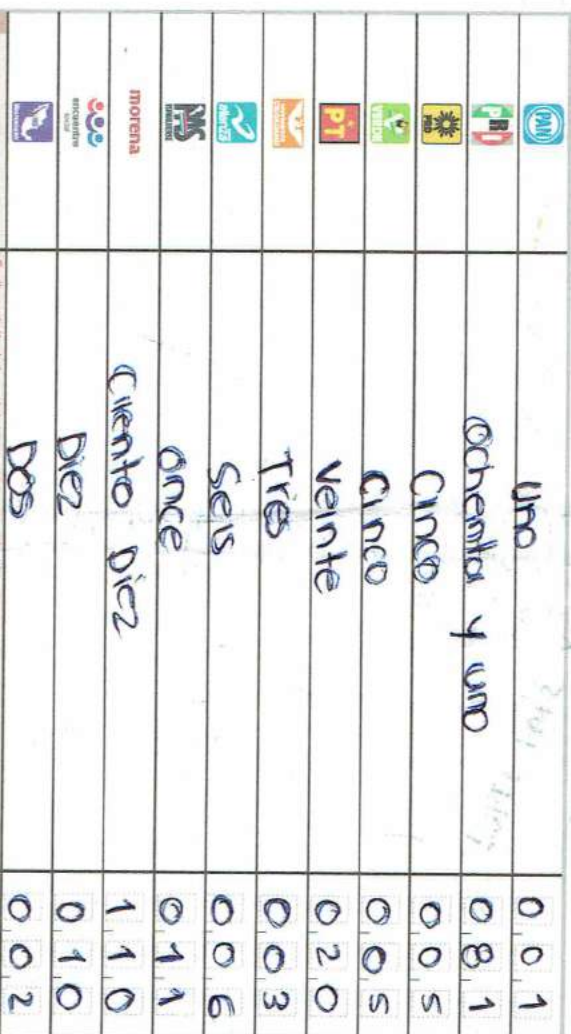 PAN Uno 0 0 1
PRI Ochenta y uno 0 8 1
PRD Cinco 0 0 5
VERDE Cinco 0 0 5
PT Veinte 0 2 0
Tres 0 0 3
alianza Seis 0 0 6
Once 0 1 1
morena Ciento Diez 1 1 0
encuentro social Diez 0 1 0
Dos 0 0 2